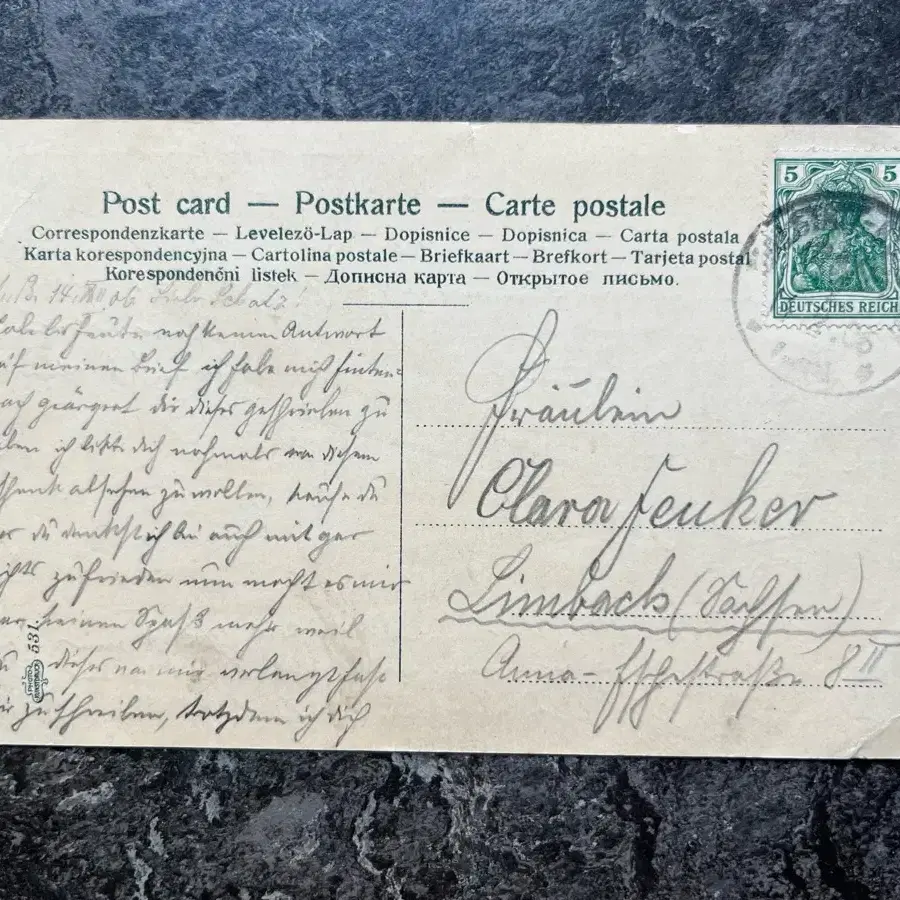 Post card — Postkarte — Carte postale
Correspondenzkarte — Levelező-Lap — Dopisnice — Dopisnica — Carta postala
Karta korespondencyjna — Cartolina postale — Briefkaart — Brefkort — Tarjeta postal
Korespondenční listek — Дописна карта — Открытое письмо.
14. 06 Lieber Schatz!
bis heute noch keinen Antwort
auf meinen Brief ich habe mich hinten-
nach geärgert dir dieses geschrieben zu
haben ich bitte dich nochmals von diesem
absehen zu wollen, du
du denkst ich bin auch mit gar
nichts zufrieden nun macht es mir
keinen Spaß mehr weil
du dieses von mir verlangt hast
dir zu schreiben, trotzdem ich dich
531.
5 5
DEUTSCHES REICH
Fräulein
Clara Jenker
Limbach (Sachsen)
Anna-Eschestraße 8 II